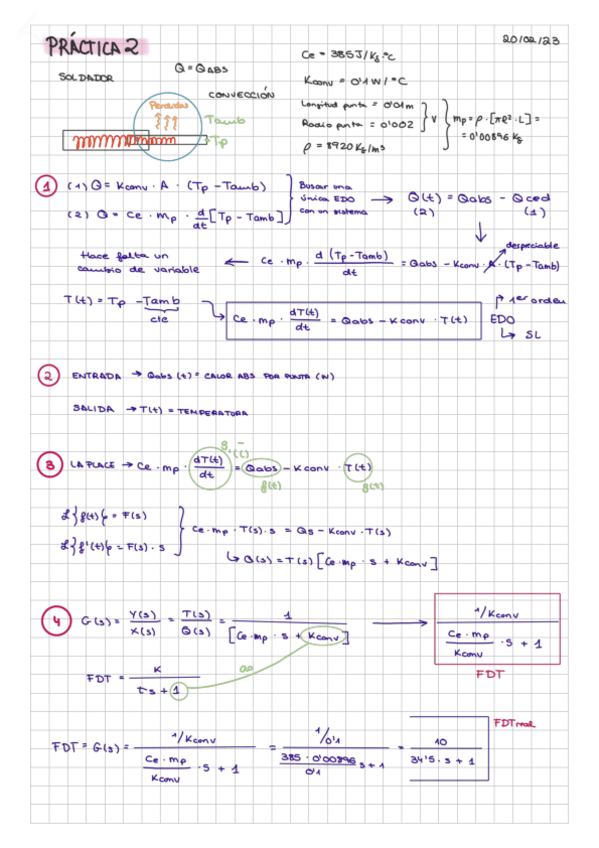 PRÁCTICA 2
20/02/23
SOLDADOR
Q = QABS
CONVECCIÓN
Perdidas
Tamb
Tp
Ce = 385 J/Kg·ºC
Kconv = 0'1 W/ºC
Longitud punta = 0'01m
Radio punta = 0'002
ρ = 8920 Kg/m3
V
mp = ρ · [πR²·L] =
= 0'00896 Kg
1 (1) Q = Kconv · A · (Tp - Tamb)
(2) Q = Ce · mp · d/dt [Tp - Tamb]
Buscar una
única EDO
con un sistema
→ Q(t) = Qabs - Qced
(2) (1)
despreciable
Ce · mp · d(Tp - Tamb)/dt = Qabs - Kconv · A · (Tp - Tamb)
←
Hace falta un
cambio de variable
T(t) = Tp - Tamb
cte
Ce · mp · dT(t)/dt = Qabs - Kconv · T(t)
1er orden
EDO
↳ SL
2 ENTRADA → Qabs(t) = CALOR ABS POR PUNTA (W)
SALIDA → T(t) = TEMPERATURA
3 LAPLACE → Ce · mp · dT(t)/dt = Qabs - Kconv · T(t)
f(t) f(t)
L{f(t)} = F(s)
L{f'(t)} = F(s) · s
Ce · mp · T(s) · s = Qs - Kconv · T(s)
↳ Q(s) = T(s) [Ce · mp · s + Kconv]
4 G(s) = Y(s)/X(s) = T(s)/Q(s) = 1/[Ce·mp · s + Kconv] → (1/Kconv)/(Ce·mp/Kconv · s + 1)
FDT
FDT = K/(τs + 1)
FDTreal
FDT = G(s) = (1/Kconv)/(Ce·mp/Kconv · s + 1) = (1/0'1)/(385 · 0'00896/0'1 s + 1) = 10/(34'5 · s + 1)